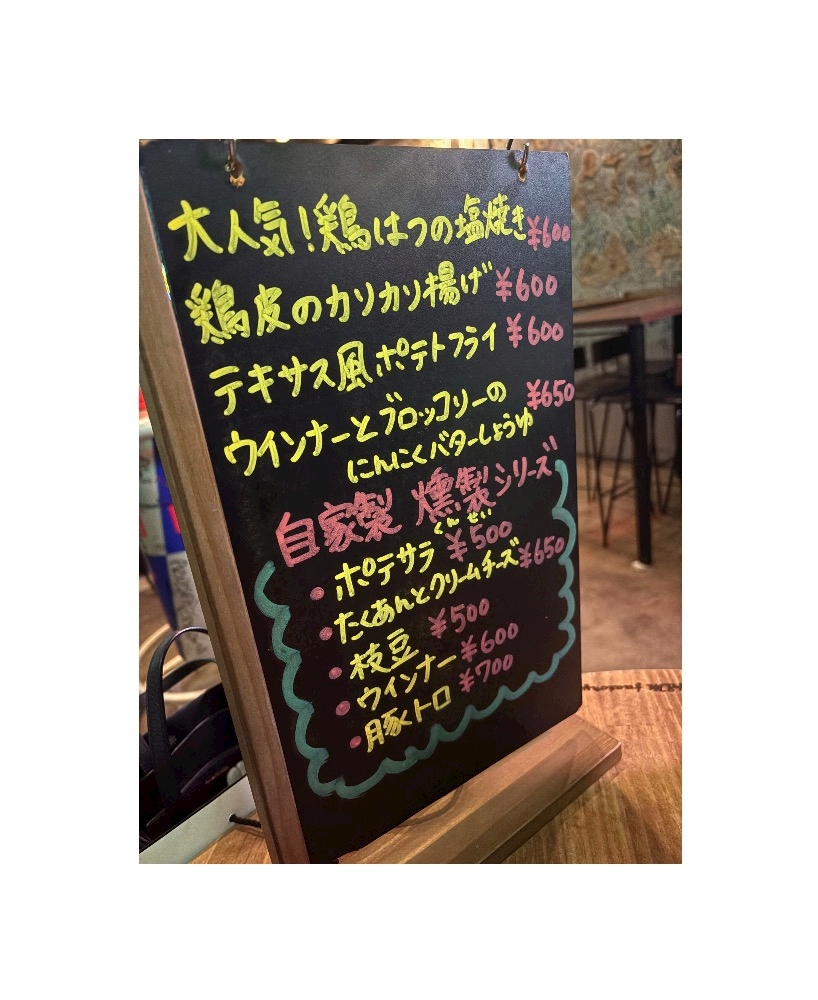 大人気!鶏はつの塩焼き ¥600
鶏皮のカリカリ揚げ ¥600
テキサス風ポテトフライ ¥600
ウインナーとブロッコリーの ¥650
にんにくバターしょうゆ
自家製 燻製シリーズ
くんせい
・ポテサラ ¥500
・たくあんとクリームチーズ ¥650
・枝豆 ¥500
・ウインナー ¥600
・豚トロ ¥700